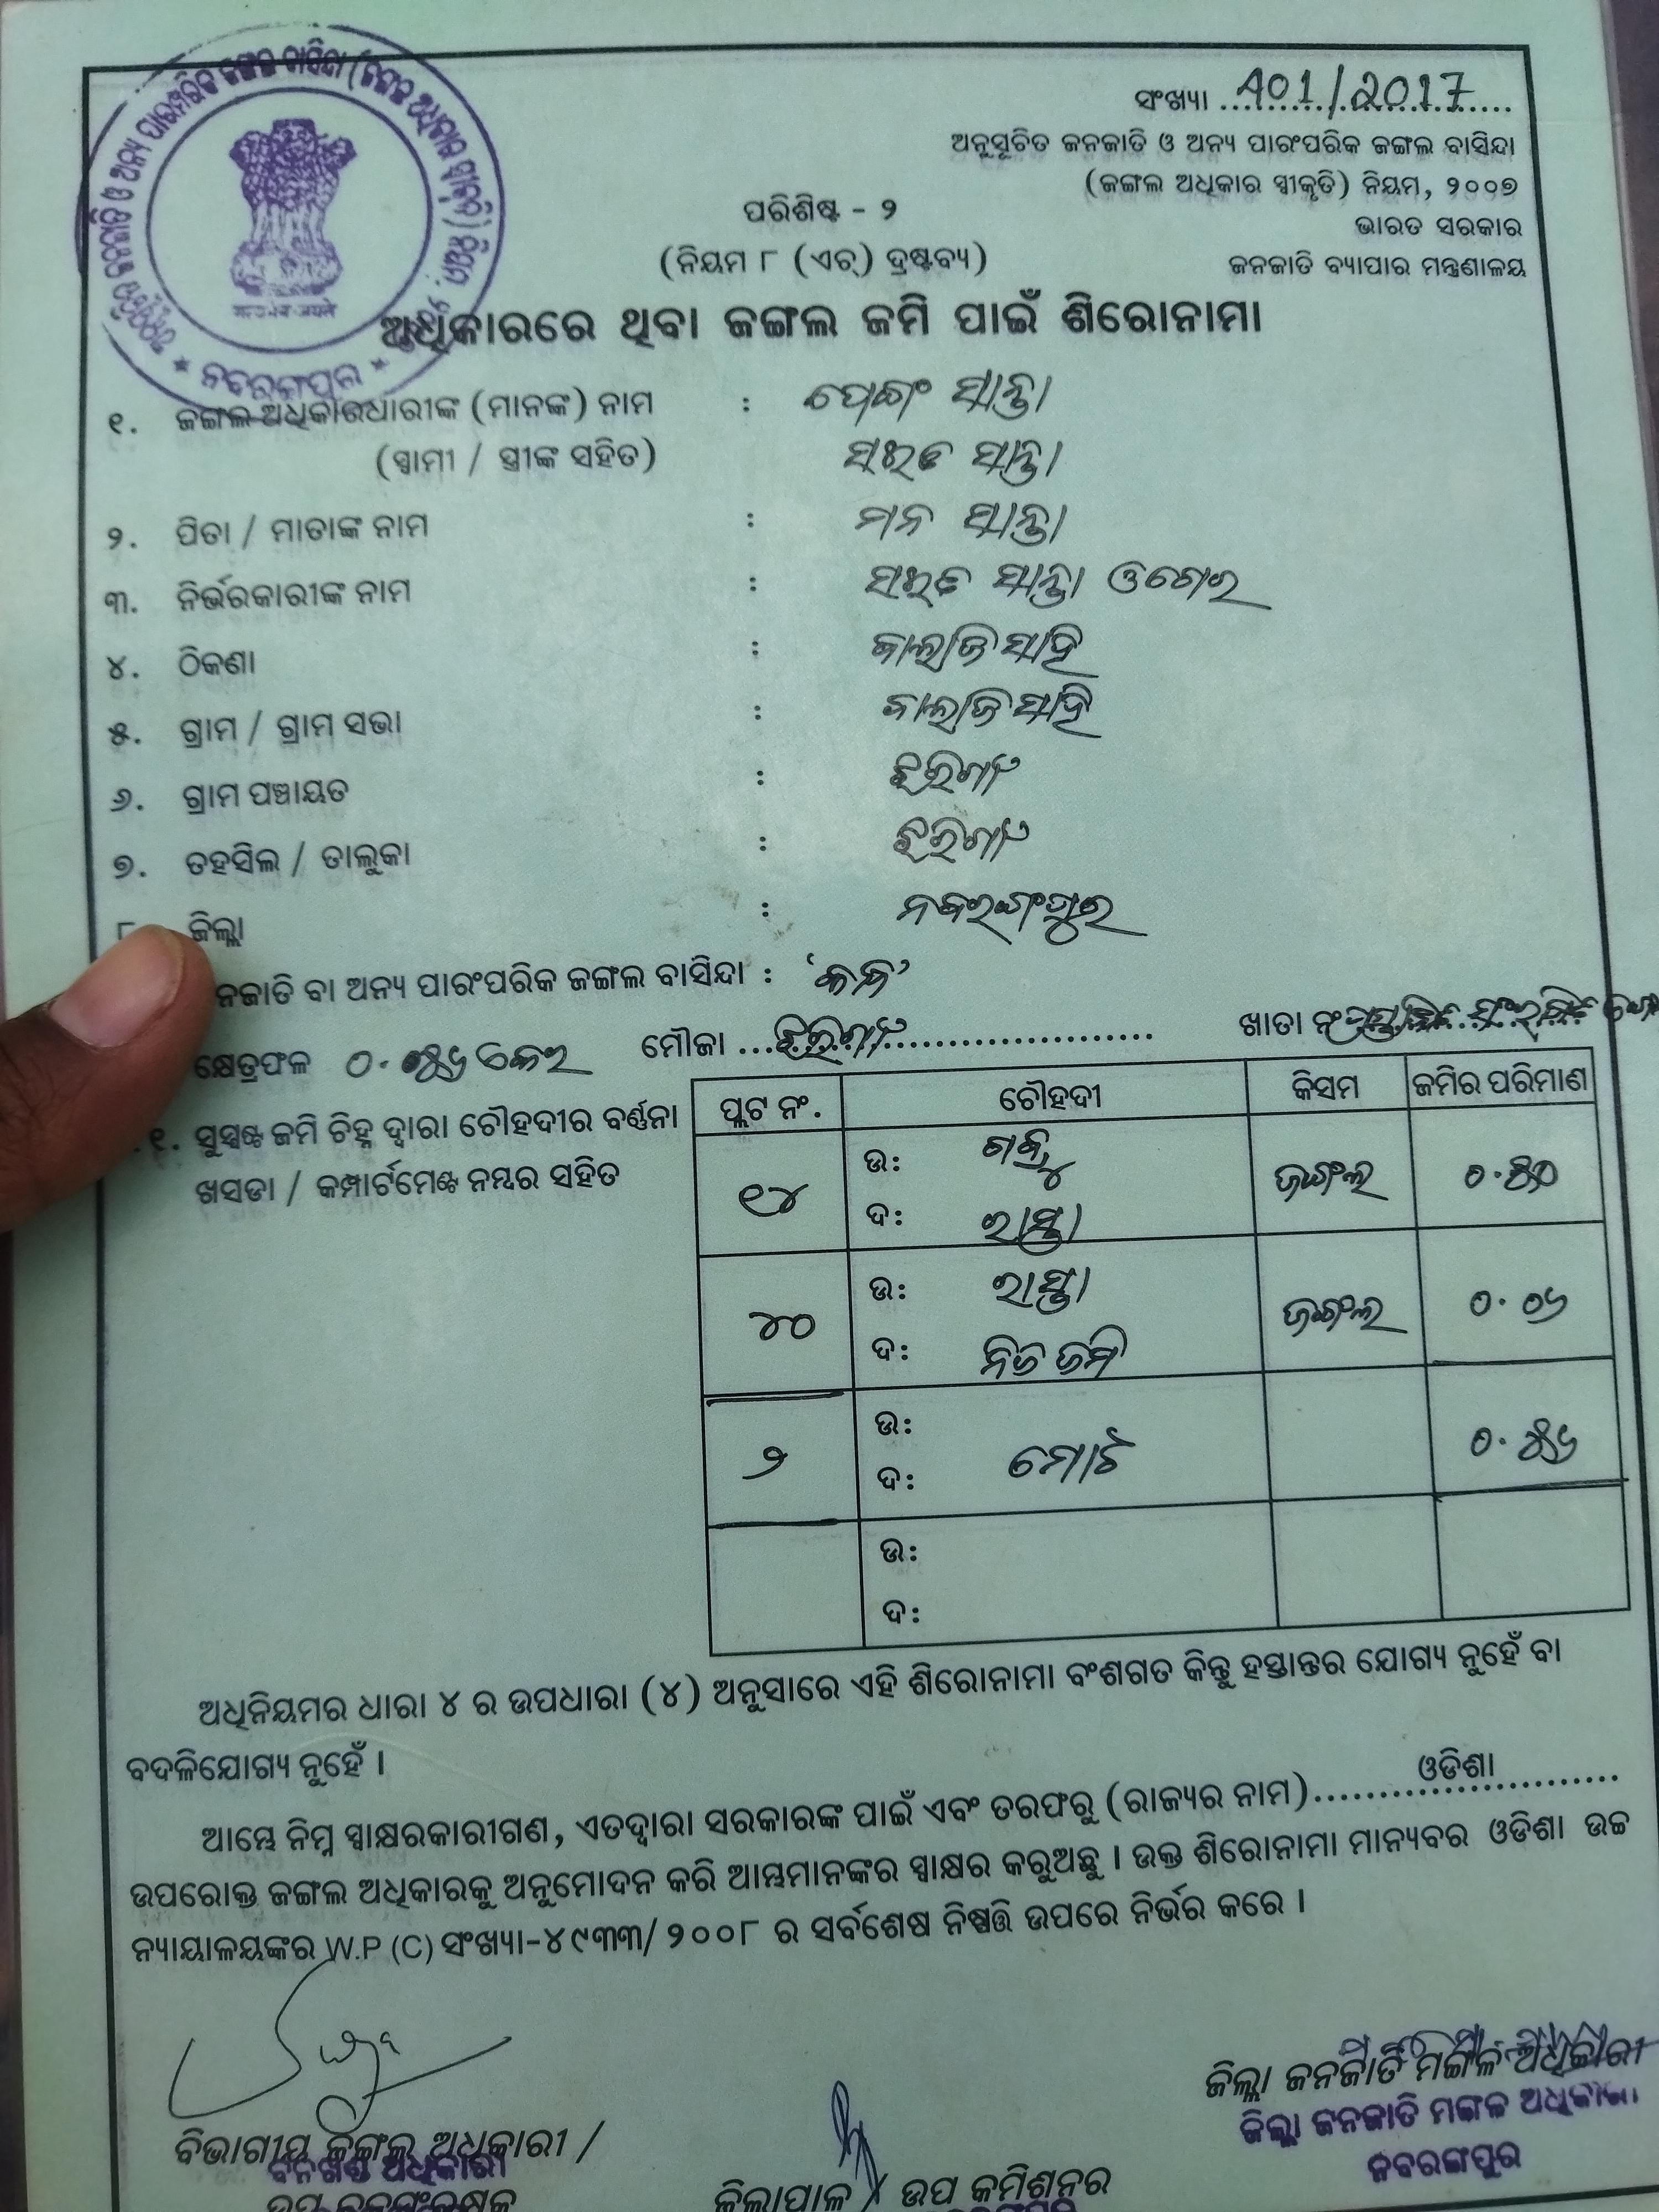 ସଂଖ୍ୟା 101/2017
ଅନୁସୂଚିତ ଜନଜାତି ଓ ଅନ୍ୟ ପାରଂପରିକ ଜଙ୍ଗଲ ବାସିନ୍ଦା
(ଜଙ୍ଗଲ ଅଧିକାର ସ୍ୱୀକୃତି) ନିୟମ, ୨୦୦୭
ଭାରତ ସରକାର
ଜନଜାତି ବ୍ୟାପାର ମନ୍ତ୍ରଣାଳୟ
ପରିଶିଷ୍ଟ - ୨
(ନିୟମ ୮ (ଏଚ୍) ଦ୍ରଷ୍ଟବ୍ୟ)
ନବରଙ୍ଗପୁର
ଅଧିକାରରେ ଥିବା ଜଙ୍ଗଲ ଜମି ପାଇଁ ଶିରୋନାମା
୧. ଜଙ୍ଗଲ ଅଧିକାରଧାରୀଙ୍କ (ମାନଙ୍କ) ନାମ : ସାନ୍ତା
(ସ୍ୱାମୀ / ସ୍ତ୍ରୀଙ୍କ ସହିତ) ସାନ୍ତା
୨. ପିତା / ମାତାଙ୍କ ନାମ : ମନ ସାନ୍ତା
୩. ନିର୍ଭରକାରୀଙ୍କ ନାମ : ସାନ୍ତା ଓଗେର
୪. ଠିକଣା :
୫. ଗ୍ରାମ / ଗ୍ରାମ ସଭା :
୬. ଗ୍ରାମ ପଞ୍ଚାୟତ : ଝରିଗାଁ
୭. ତହସିଲ / ତାଲୁକା : ଝରିଗାଁ
୮ ଜିଲ୍ଲା : ନବରଙ୍ଗପୁର
ନଜାତି ବା ଅନ୍ୟ ପାରଂପରିକ ଜଙ୍ଗଲ ବାସିନ୍ଦା : 'କନ୍ଧ'
କ୍ଷେତ୍ରଫଳ ଏକର ମୌଜା ଝରିଗାଁ ଖାତା ନଂ
୧. ସୁସ୍ପଷ୍ଟ ଜମି ଚିହ୍ନ ଦ୍ୱାରା ଚୌହଦୀର ବର୍ଣ୍ଣନା
ଖସଡା / କମ୍ପାର୍ଟମେଣ୍ଟ ନମ୍ବର ସହିତ
ପ୍ଲଟ ନଂ. ଚୌହଦୀ କିସମ ଜମିର ପରିମାଣ
୧୪ ଉ: ଜଙ୍ଗଲ ୦.୫୦
ଦ: ରାସ୍ତା
୪୦ ଉ: ରାସ୍ତା ଜଙ୍ଗଲ ୦.୦୬
ଦ: ନିଜ ଜମି
୨ ଉ: ମୋଟ ୦.୫୬
ଦ:
ଉ:
ଦ:
ଅଧିନିୟମର ଧାରା ୪ ର ଉପଧାରା (୪) ଅନୁସାରେ ଏହି ଶିରୋନାମା ବଂଶଗତ କିନ୍ତୁ ହସ୍ତାନ୍ତର ଯୋଗ୍ୟ ନୁହେଁ ବା
ବଦଳିଯୋଗ୍ୟ ନୁହେଁ ।
ଆମ୍ଭେ ନିମ୍ନ ସ୍ୱାକ୍ଷରକାରୀଗଣ, ଏତଦ୍ୱାରା ସରକାରଙ୍କ ପାଇଁ ଏବଂ ତରଫରୁ (ରାଜ୍ୟର ନାମ) ଓଡିଶା
ଉପରୋକ୍ତ ଜଙ୍ଗଲ ଅଧିକାରକୁ ଅନୁମୋଦନ କରି ଆମ୍ଭମାନଙ୍କର ସ୍ୱାକ୍ଷର କରୁଅଛୁ । ଉକ୍ତ ଶିରୋନାମା ମାନ୍ୟବର ଓଡିଶା ଉଚ୍ଚ
ନ୍ୟାୟାଳୟଙ୍କର W.P (C) ସଂଖ୍ୟା-୪୯୩୩/୨୦୦୮ ର ସର୍ବଶେଷ ନିଷ୍ପତ୍ତି ଉପରେ ନିର୍ଭର କରେ ।
ବିଭାଗୀୟ ଜଙ୍ଗଲ ଅଧିକାରୀ /
ବନଖଣ୍ଡ ଅଧିକାରୀ
ଜିଲ୍ଲାପାଳ / ଉପ କମିଶନର
ଜିଲ୍ଲା ଜନଜାତି ମଙ୍ଗଳ ଅଧିକାରୀ
ଜିଲ୍ଲା ଜନଜାତି ମଙ୍ଗଳ ଅଧିକାରୀ
ନବରଙ୍ଗପୁର